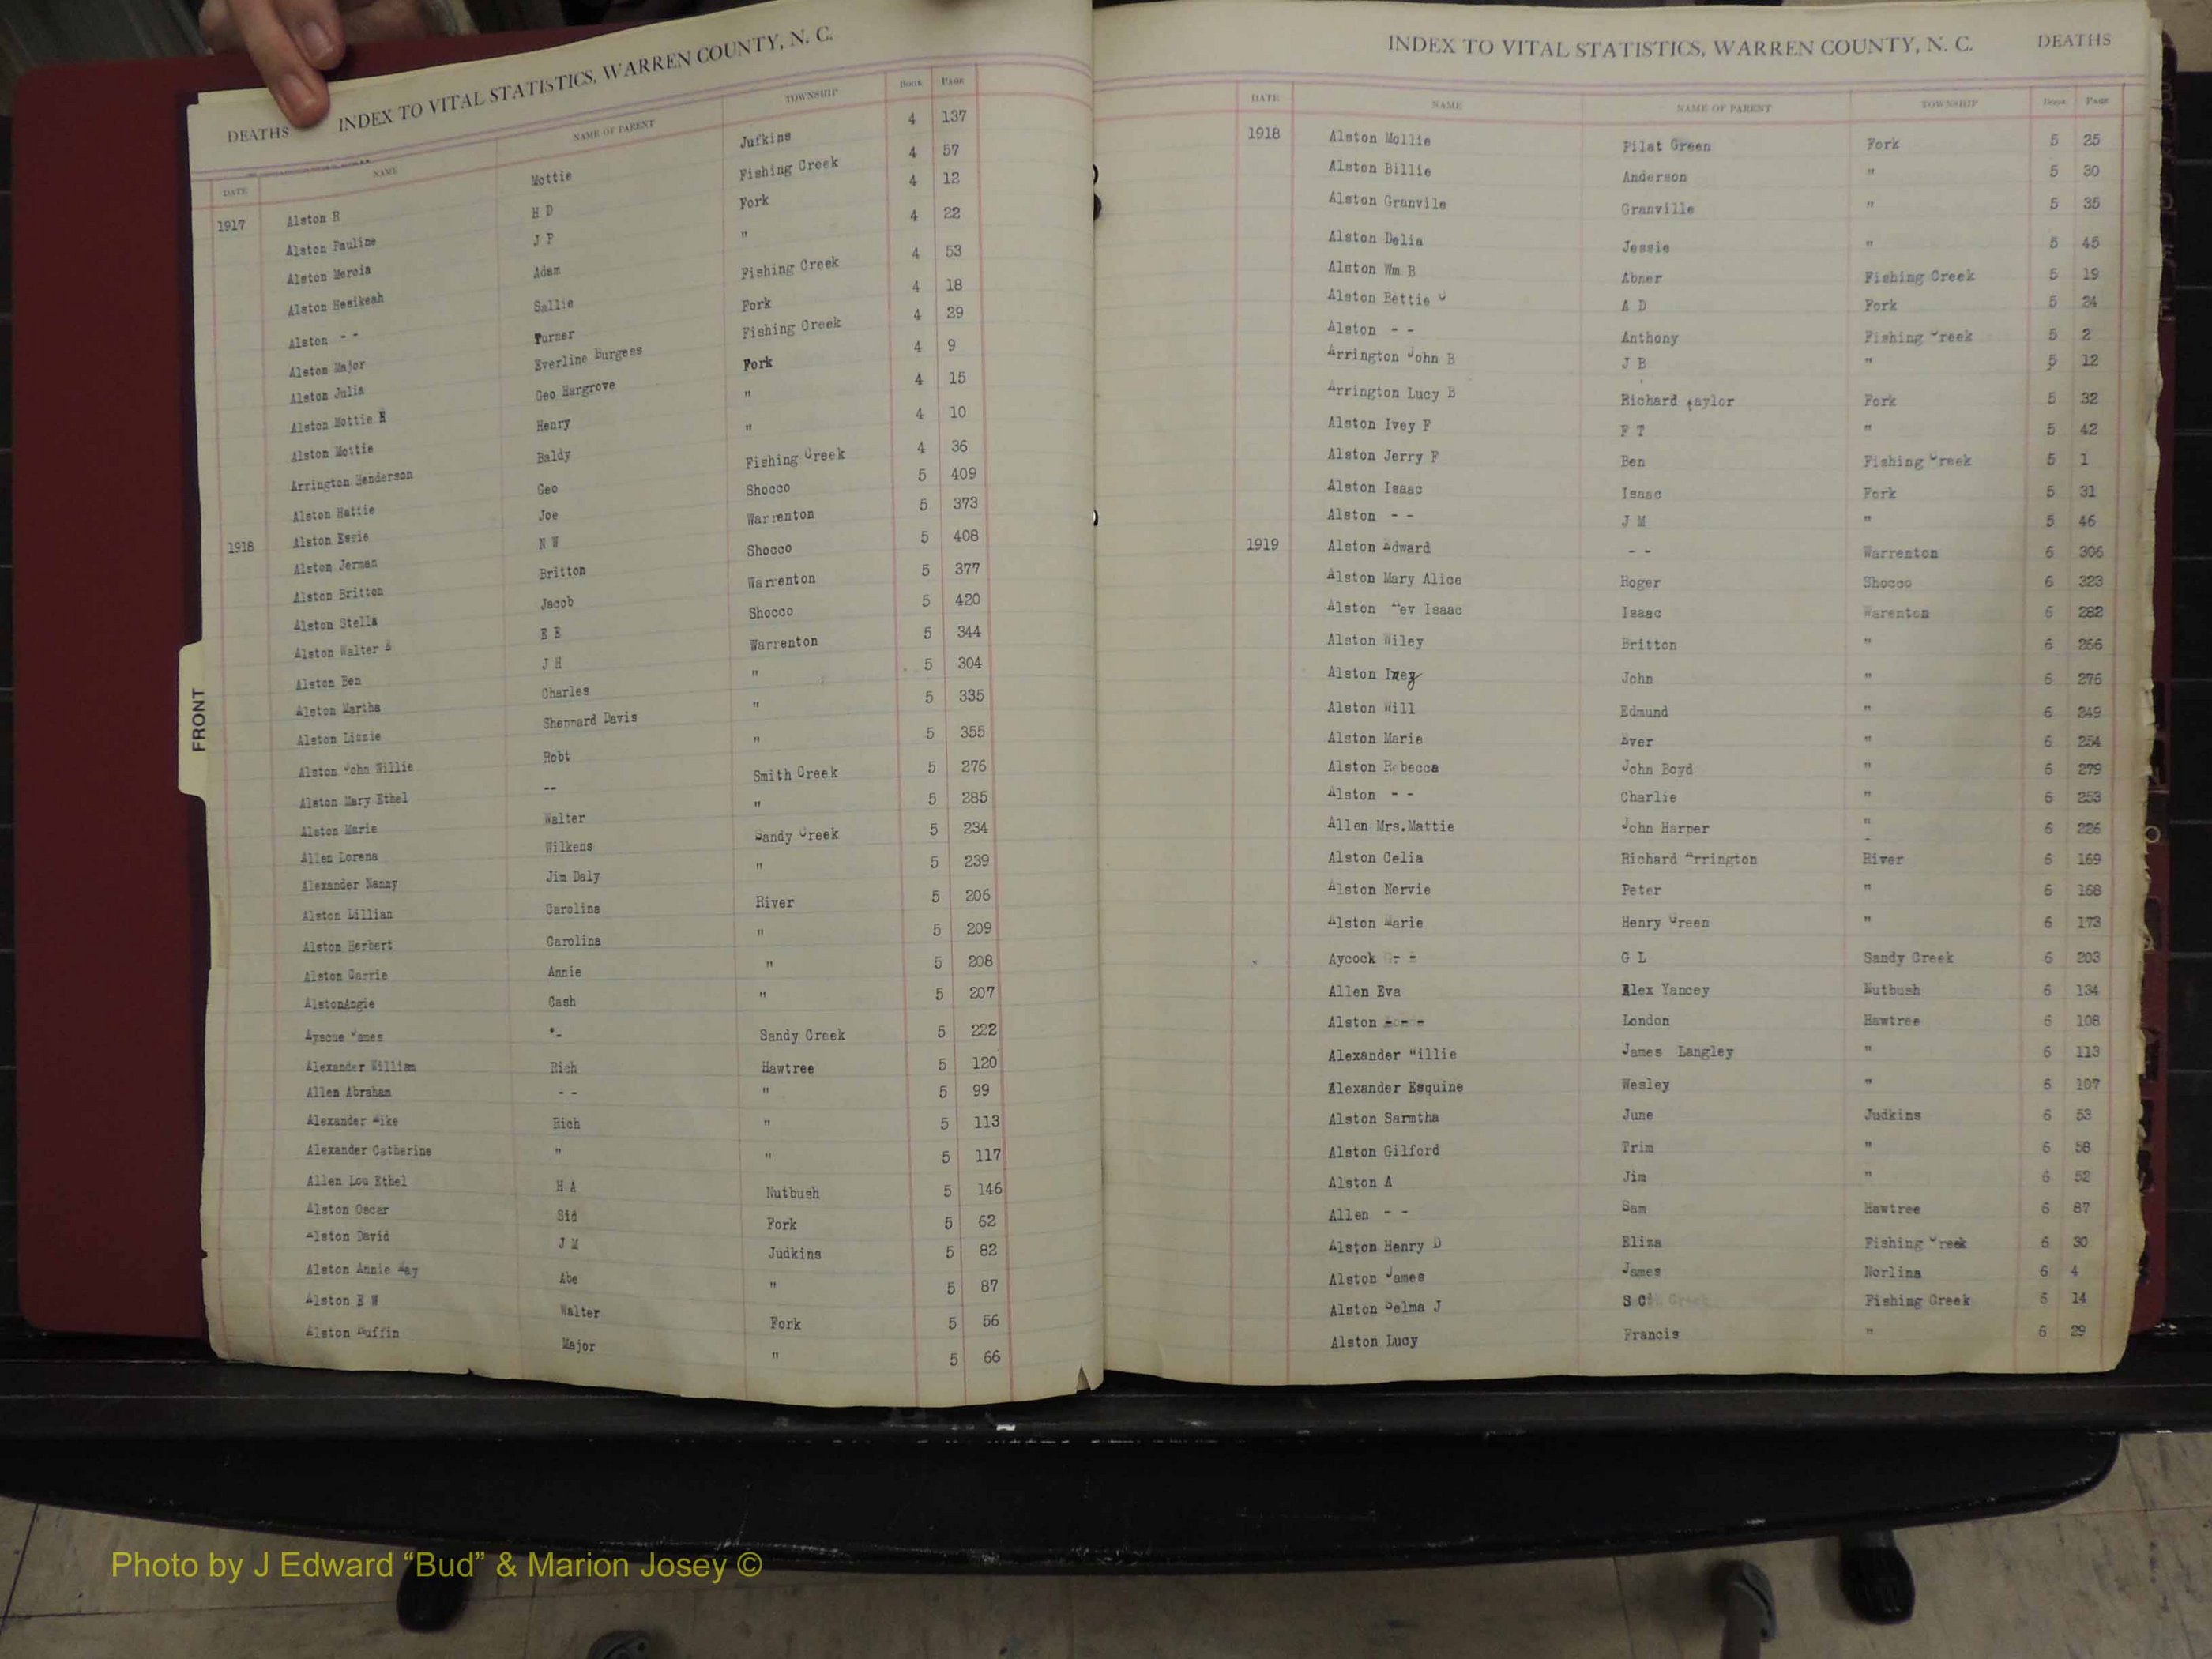 DEATHS INDEX TO VITAL STATISTICS, WARREN COUNTY, N. C.
DATE NAME NAME OF PARENT TOWNSHIP Book Page
1917 Alston R Mottie Jufkins 4 137
Alston Pauline H D Fishing Creek 4 57
Alston Mercia J P Fork 4 12
Alston Hesikeah Adam " 4 22
Alston - - Sallie Fishing Creek 4 53
Alston Major Turner Fork 4 18
Alston Julia Everline Burgess Fishing Creek 4 29
Alston Mottie R Geo Hargrove Fork 4 9
Alston Mottie Henry " 4 15
Arrington Henderson Baldy " 4 10
Alston Hattie Geo Fishing Creek 4 36
1918 Alston Essie Joe Shocco 5 409
Alston Jerman N W Warrenton 5 373
Alston Britton Britton Shocco 5 408
Alston Stella Jacob Warrenton 5 377
Alston Walter B E E Shocco 5 420
Alston Ben J H Warrenton 5 344
Alston Martha Charles " 5 304
Alston Lizzie Sheppard Davis " 5 335
Alston John Willie Robt " 5 355
Alston Mary Ethel -- Smith Creek 5 276
Alston Marie Walter " 5 285
Allen Lorena Wilkens Sandy Creek 5 234
Alexander Nanny Jim Daly " 5 239
Alston Lillian Carolina River 5 206
Alston Herbert Carolina " 5 209
Alston Carrie Annie " 5 208
AlstonAngie Cash " 5 207
Ayscue James -- Sandy Creek 5 222
Alexander William Rich Hawtree 5 120
Allen Abraham - - " 5 99
Alexander Mike Rich " 5 113
Alexander Catherine " " 5 117
Allen Lou Ethel H A Nutbush 5 146
Alston Oscar Sid Fork 5 62
Alston David J M Judkins 5 82
Alston Annie May Abe " 5 87
Alston E W Walter Fork 5 56
Alston Ruffin Major " 5 66
FRONT
INDEX TO VITAL STATISTICS, WARREN COUNTY, N. C. DEATHS
DATE NAME NAME OF PARENT TOWNSHIP Book Page
1918 Alston Mollie Pilat Green Fork 5 25
Alston Billie Anderson " 5 30
Alston Granvile Granville " 5 35
Alston Delia Jessie " 5 45
Alston Wm B Abner Fishing Creek 5 19
Alston Bettie J A D Fork 5 24
Alston - - Anthony Fishing Creek 5 2
Arrington John B J B " 5 12
Arrington Lucy B Richard Taylor Fork 5 32
Alston Ivey F F T " 5 42
Alston Jerry F Ben Fishing Creek 5 1
Alston Isaac Isaac Fork 5 31
Alston - - J M " 5 46
1919 Alston Edward - - Warrenton 6 306
Alston Mary Alice Roger Shocco 6 323
Alston Rev Isaac Isaac Warenton 6 282
Alston Wiley Britton " 6 266
Alston Inez John " 6 275
Alston Will Edmund " 6 249
Alston Marie Ever " 6 254
Alston Rebecca John Boyd " 6 279
Alston - - Charlie " 6 253
Allen Mrs.Mattie John Harper " 6 226
Alston Celia Richard Arrington River 6 169
Alston Nervie Peter " 6 168
Alston Marie Henry Green " 6 173
Aycock - - G L Sandy Creek 6 203
Allen Eva Alex Yancey Nutbush 6 134
Alston - - - London Hawtree 6 108
Alexander Willie James Langley " 6 113
Alexander Esquine Wesley " 6 107
Alston Sarmtha June Judkins 6 53
Alston Gilford Trim " 6 58
Alston A Jim " 6 52
Allen - - Sam Hawtree 6 87
Alston Henry D Eliza Fishing Creek 6 30
Alston James James Norlina 6 4
Alston Selma J S C Fishing Creek 6 14
Alston Lucy Francis " 6 29
Photo by J Edward “Bud” & Marion Josey ©